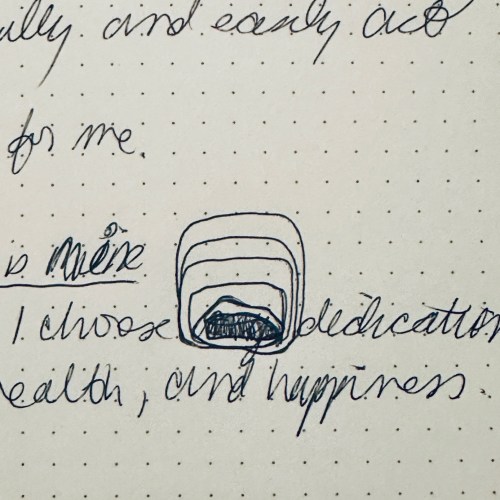 ully and easily act
for me.
is mine
I choose dedication
ealth, and happiness